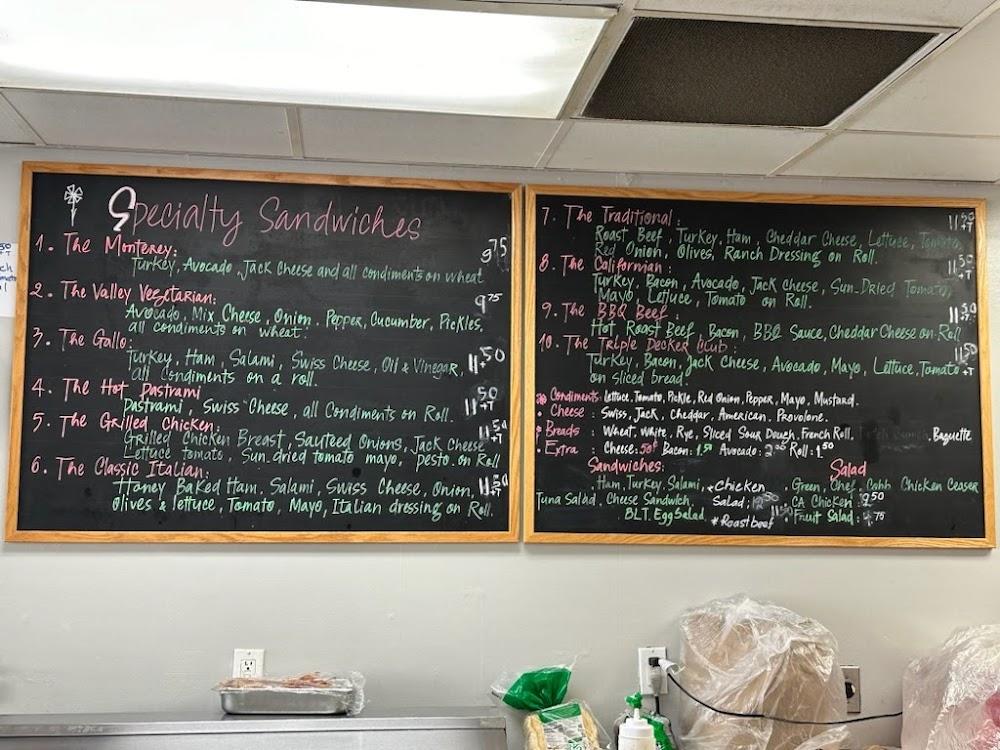 Specialty Sandwiches
1. The Monterey:
Turkey, Avocado, Jack Cheese and all condiments on wheat 9.75
2. The Valley Vegetarian:
Avocado, Mix Cheese, Onion. Pepper, Cucumber, Pickles, 9.75
all condiments on wheat.
3. The Gallo:
Turkey, Ham, Salami, Swiss Cheese, Oil & Vinegar, 11.50 +T
all Condiments on a roll.
4. The Hot Pastrami
Pastrami, Swiss Cheese, all Condiments on Roll. 11.50 +T
5. The Grilled Chicken:
Grilled Chicken Breast, Sauteed Onions, Jack Cheese 11.50 +T
Lettuce tomato, Sun dried tomato mayo, pesto on Roll
6. The Classic Italian:
Honey Baked Ham, Salami, Swiss Cheese, Onion, 11.50 +T
Olives & lettuce, Tomato, Mayo, Italian dressing on Roll.
7. The Traditional: 11.50 +T
Roast Beef, Turkey, Ham, Cheddar Cheese, Lettuce, Tomato,
Red Onion, Olives, Ranch Dressing on Roll.
8. The Californian: 11.50 +T
Turkey, Bacon, Avocado, Jack Cheese, Sun-Dried Tomato,
Mayo, Lettuce, Tomato on Roll.
9. The BBQ Beef: 11.50 +T
Hot, Roast Beef, Bacon, BBQ Sauce, Cheddar Cheese on Roll
10. The Triple Decker Club: 11.50 +T
Turkey, Bacon, Jack Cheese, Avocado, Mayo, Lettuce, Tomato
on sliced bread.
Condiments: Lettuce, Tomato, Pickle, Red Onion, Pepper, Mayo, Mustard.
• Cheese: Swiss, Jack, Cheddar, American, Provolone.
• Breads: Wheat, White, Rye, Sliced Sour Dough, French Roll, Baguette
• Extra: Cheese: 50¢ Bacon: 1.50 Avocado: Roll: 1.50
Sandwiches: Salad
Ham, Turkey, Salami, * Chicken . Green, Chef, Cobb Chicken Ceaser
Tuna Salad, Cheese Sandwich Salad, . CA Chicken: 9.50
BLT, Egg Salad * Roast beef 11.50 . Fruit Salad: